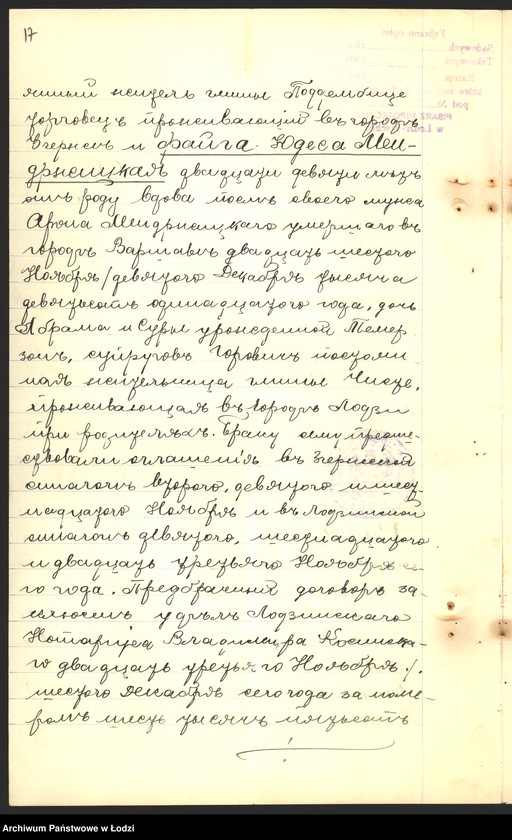 17
янный житель гмины Поддембице
торговецъ проживающій въ городѣ
Згержѣ и Файга Юдеса Мен-
држицкая двадцати девяти лѣтъ
отъ роду вдова послѣ своего мужа
Арона Мендржицкаго умершаго въ
городѣ Варшавѣ двадцать шестого
Ноября/девятого Декабря тысяча
девятьсотъ одиннадцатого года, дочь
Абрама и Суры урожденной Темер
зонъ, супруговъ Горовичъ постоян
ная жительница гмины Чисте,
проживающая въ городѣ Лодзи
при родителяхъ. Браку сему предше-
ствовали оглашенія въ Згержской
синагогѣ второго, девятого и шест
надцатого Ноября и въ Лодзинской
синагогѣ девятого, шестнадцатого
и двадцать третьяго Ноября се-
го года. Предбрачный договоръ за-
ключенъ у Лодзинскаго
Нотаріуса Владиміра
го двадцать третьяго Ноября /.
шестого Декабря сего года за номе-
ромъ шесть тысячъ пятьсотъ
Pobrano opłat
Sądowych
pod №
w Łodzi
Archiwum Państwowe w Łodzi